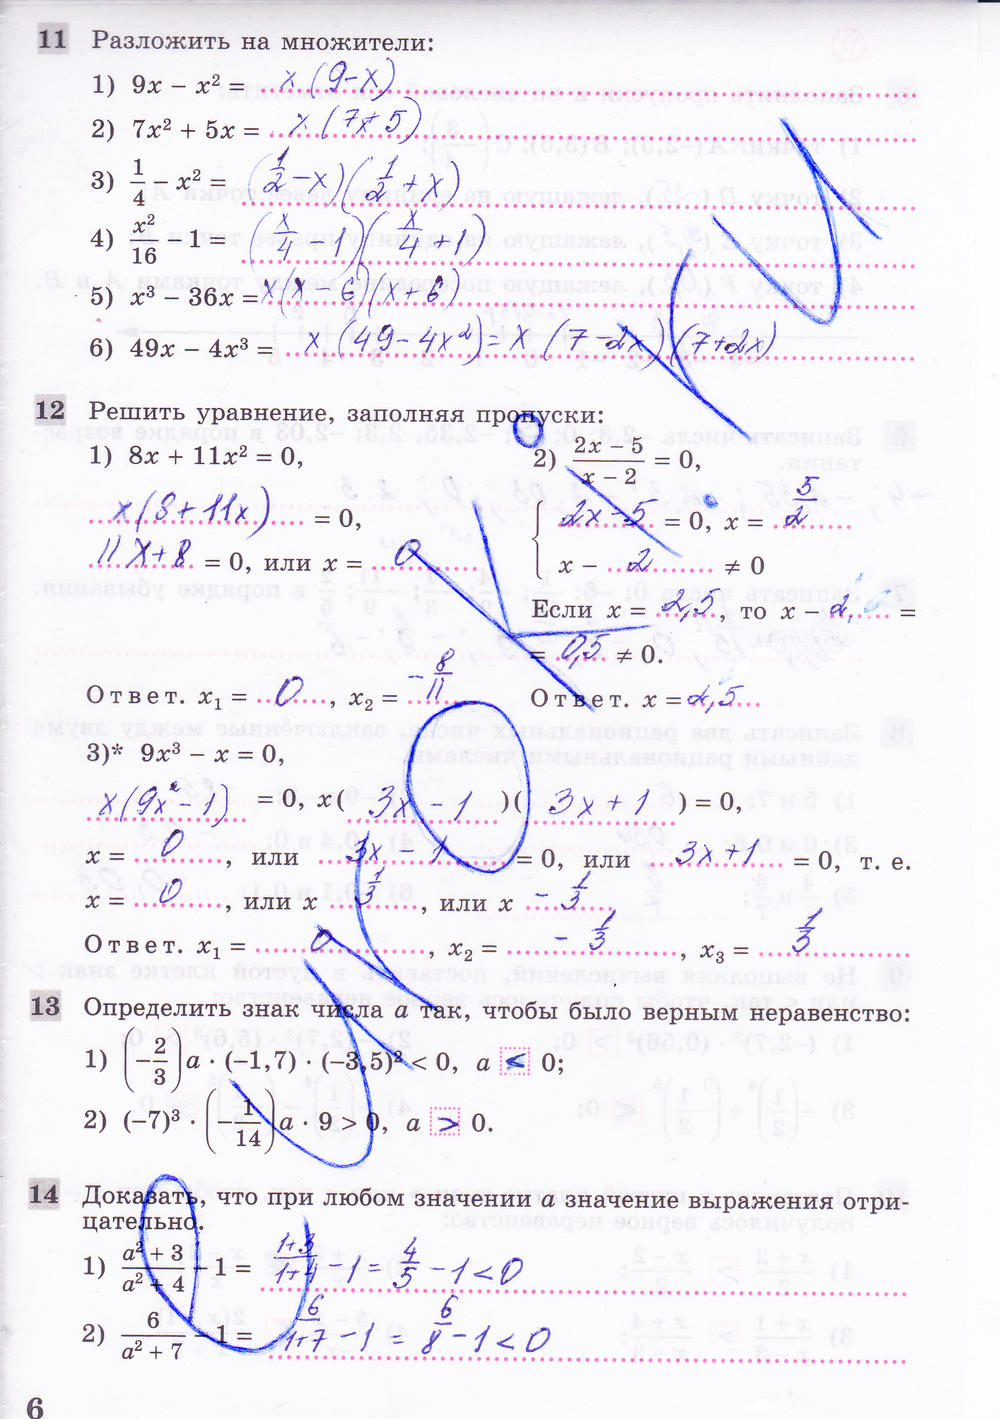 11 Разложить на множители:
1) 9x − x² = x(9−x)
2) 7x² + 5x = x(7x+5)
3) 1/4 − x² = (1/2−x)(1/2+x)
4) x²/16 − 1 = (x/4 − 1)(x/4 + 1)
5) x³ − 36x = x(x − 6)(x + 6)
6) 49x − 4x³ = x(49−4x²) = x(7−2x)(7+2x)
12 Решить уравнение, заполняя пропуски:
1) 8x + 11x² = 0,
x(8+11x) = 0,
11x+8 = 0, или x = 0
Ответ. x₁ = 0, x₂ = −8/11
2) (2x − 5)/(x − 2) = 0,
{ 2x−5 = 0, x = 5/2
x − 2 ≠ 0
Если x = 2,5, то x − 2 =
= 0,5 ≠ 0.
Ответ. x = 2,5
3)* 9x³ − x = 0,
x(9x²−1) = 0, x( 3x − 1 )( 3x + 1 ) = 0,
x = 0, или 3x − 1 = 0, или 3x+1 = 0, т. е.
x = 0, или x 1/3, или x −1/3
Ответ. x₁ = 0, x₂ = −1/3, x₃ = 1/3
13 Определить знак числа a так, чтобы было верным неравенство:
1) (−2/3)a · (−1,7) · (−3,5)² < 0, a < 0;
2) (−7)³ · (−1/14)a · 9 > 0, a > 0.
14 Доказать, что при любом значении a значение выражения отри-
цательно.
1) (a² + 3)/(a² + 4) − 1 = (1+3)/(1+4) − 1 = 4/5 − 1 < 0
2) 6/(a² + 7) − 1 = 6/(1+7) − 1 = 6/8 − 1 < 0
6